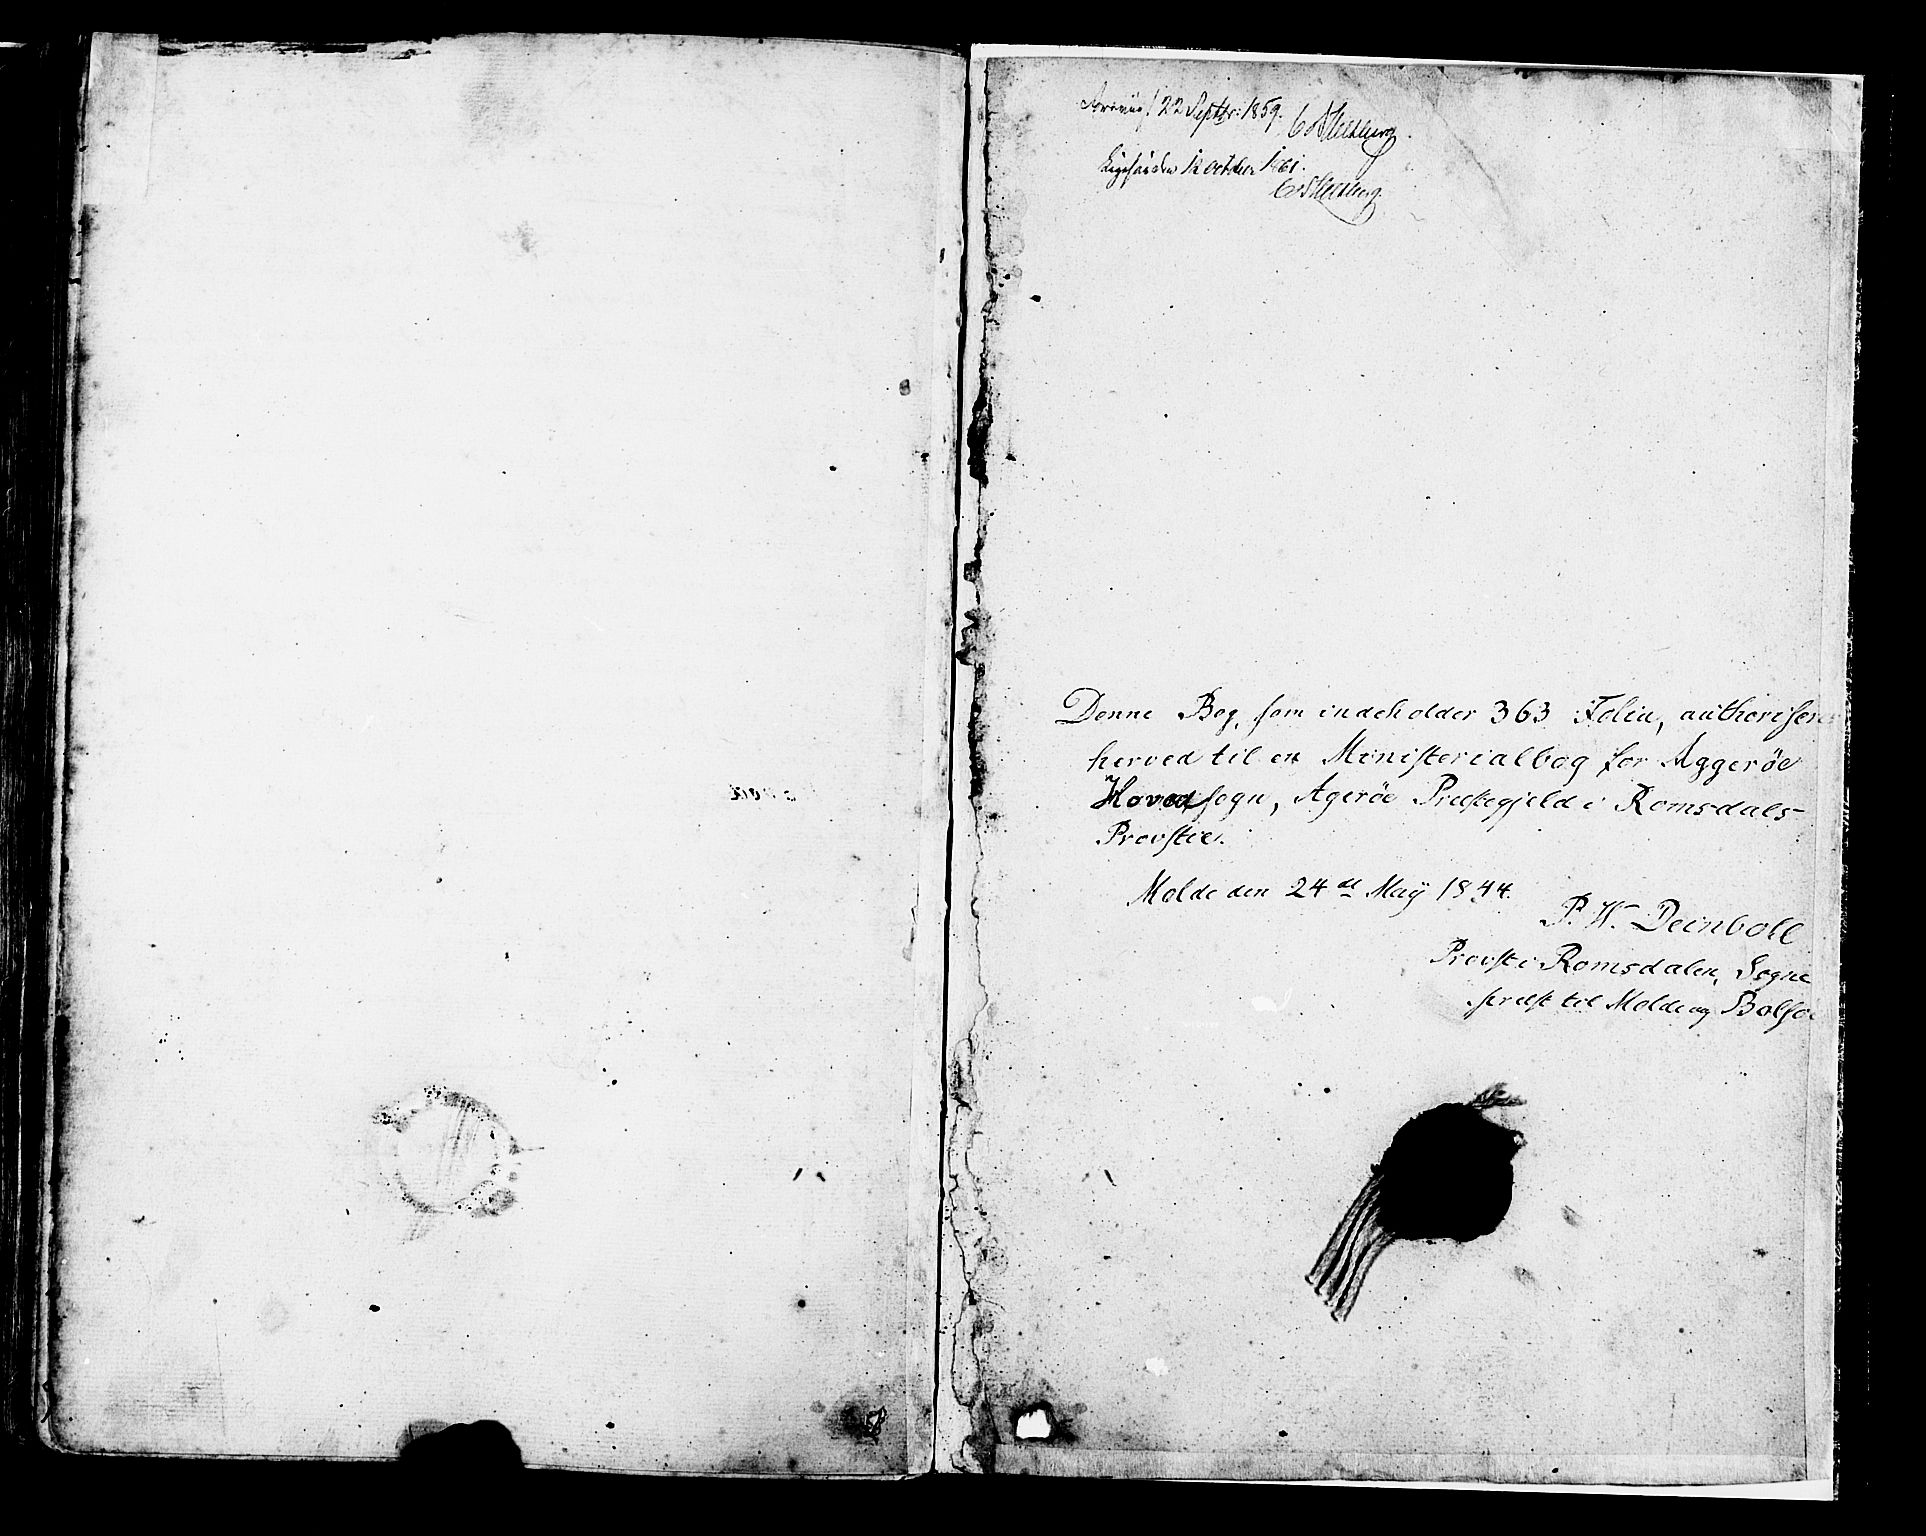 22 Septbr. 1859.
Ligesaa den 12 October 1861.
Denne Bog, som indeholder 363 Folia, authoriseres
herved til en Ministerialbog for Aggerøe
Hovedsogn, Agerøe Præstegjeld i Romsdals-
Provstie.
Molde den 24de Maÿ 1844.
P. W. Deinboll
Provst i Romsdalen, Sogne
præst til Molde og Bolsøe